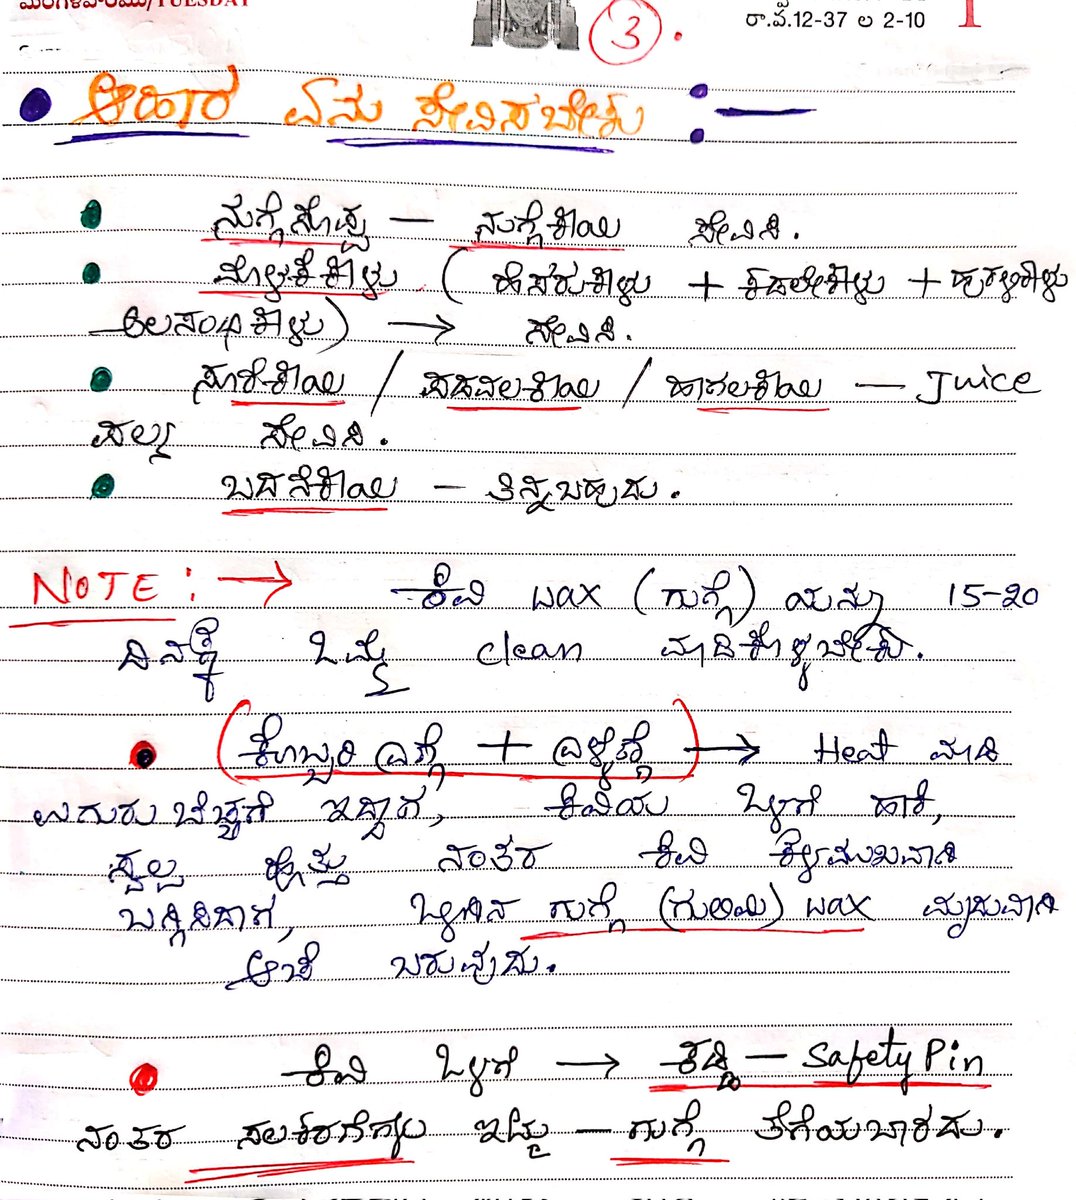 ಮಂಗಳವಾರಮು/TUESDAY
ರಾ.ವ.12-37 ಲ 2-10
1
3.
• ಆಹಾರ ಏನು ಸೇವಿಸಬೇಕು :-
• ನುಗ್ಗೆಸೊಪ್ಪು — ನುಗ್ಗೆಕಾಯಿ ಸೇವಿಸಿ.
• ಮೊಳಕೆಕಾಳು (ಹೆಸರುಕಾಳು + ಕಡಲೇಕಾಳು + ಹುರಳಿಕಾಳು
ಅಲಸಂಧಿಕಾಳು) → ಸೇವಿಸಿ.
• ಸೂರೆಕಾಯಿ / ಪಡವಲಕಾಯಿ / ಹಾಗಲಕಾಯಿ — Juice
ಪಲ್ಯ ಸೇವಿಸಿ.
• ಬದನೆಕಾಯಿ — ತಿನ್ನಬಹುದು.
NOTE : → ಕಿವಿ wax (ಗುಗ್ಗೆ) ಯನ್ನು 15-20
ದಿನಕ್ಕೆ ಒಮ್ಮೆ clean ಮಾಡಿಕೊಳ್ಳಬೇಕು.
• (ಕೊಬ್ಬರಿ ಎಣ್ಣೆ + ಎಳ್ಳೆಣ್ಣೆ) → Heat ಮಾಡಿ
ಉಗುರುಬೆಚ್ಚಗೆ ಇದ್ದಾಗ, ಕಿವಿಯ ಒಳಗೆ ಹಾಕಿ,
ಸ್ವಲ್ಪ ಹೊತ್ತು ನಂತರ ಕಿವಿ ಕೆಳಮುಖವಾಗಿ
ಬಗ್ಗಿಸಿದಾಗ, ಒಳಗಿನ ಗುಗ್ಗೆ (ಗುಂಯಿ) wax ಮೃದುವಾಗಿ
ಆಚೆ ಬರುವುದು.
• ಕಿವಿ ಒಳಗೆ → ಕಡ್ಡಿ — Safety Pin
ನಂತರ ಸಲಕರಣೆಗಳು ಇಟ್ಟು — ಗುಗ್ಗೆ ತೆಗೆಯಬಾರದು.